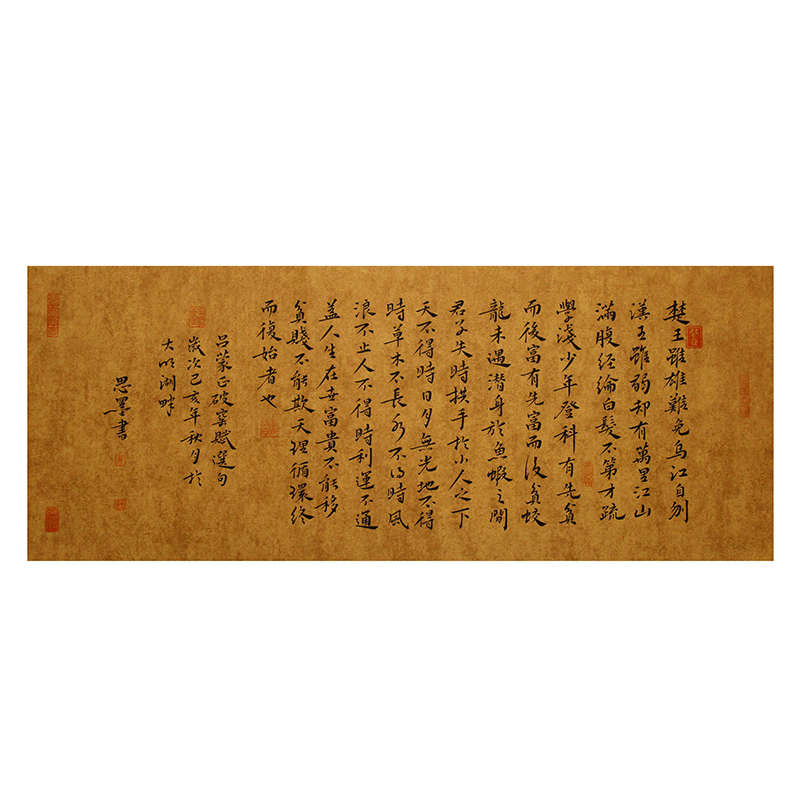 楚王雖雄難免烏江自刎
漢王雖弱却有萬里江山
滿腹經綸白髮不第才疏
學淺少年登科有先貧
而後富有先富而後貧蛟
龍未遇潜身於魚蝦之間
君子失時拱手於小人之下
天不得時日月無光地不得
時草木不長水不得時風
浪不止人不得時利運不通
盖人生在世富貴不能移
貧賤不能欺天理循環終
而復始者也
吕蒙正破窑賦選句
歲次己亥年秋月於
大明湖畔
思墨書